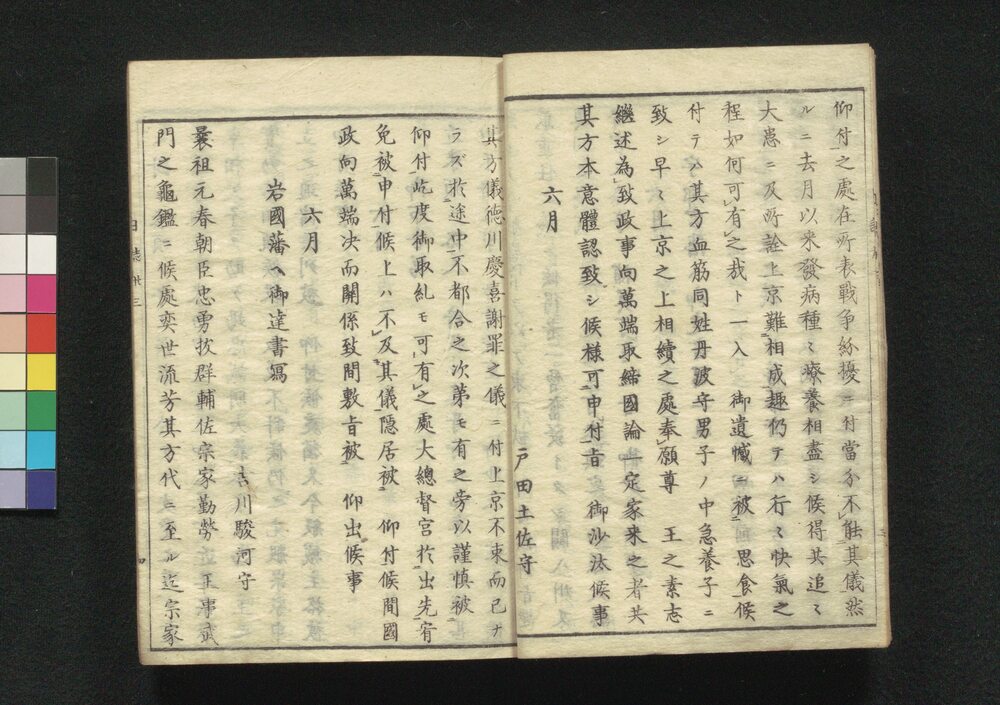 仰付之處在所表戰争紛擾ニ付當分不能其儀然
ルニ去月以来發病種〻療養相盡シ候得共追〻
大患ニ及所詮上京難相成趣仍テハ行〻快氣之
程如何可有之哉ト一入　御遺憾ニ被　思食候
付テハ其方血筋同姓丹波守男子ノ中急養子ニ
致シ早〻上京之上相續之處奉願尊　王之素志
繼述為致政事向萬端取締國論一定家来之者共
其方本意體認致シ候様可申付旨　御沙汰候事
六月
戸田土佐守
其方儀德川慶喜謝罪之儀ニ付上京不束而已ナ
ラズ於途中不都合之次第モ有之旁以謹慎被
仰付屹度御取糺モ可有之處大總督宮於出先宥
免被申付候上ハ不及其儀隠居被　仰付候間國
政向萬端决而關係致間敷旨被　仰出候事
六月
岩國藩ヘ御達書寫
吉川駿河守
曩祖元春朝臣忠勇拔群輔佐宗家勤勞王事武
門之龜鑑ニ候處奕世流芳其方代ニ至ル迄宗家
日誌
三
四